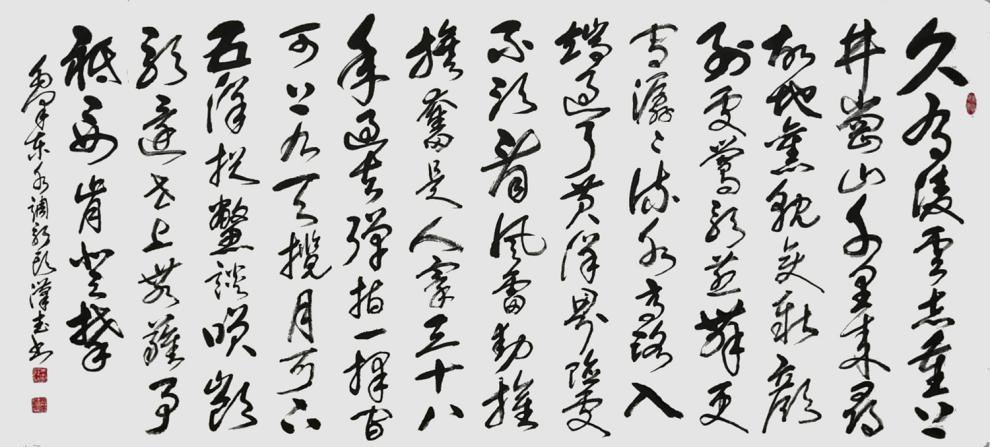 久有凌雲志重上
井崗山千里来尋
故地舊貌変新顔
到處鶯歌燕舞更
有潺潺流水高路入
端過了黄洋界險處
不須看風雷動旌
旗奮是人寰三十八
年過去彈指一揮間
可上九天攬月可下
五洋捉鱉談笑凱
歌還世上無難事
祗要肯登攀
毛澤東水調歌頭